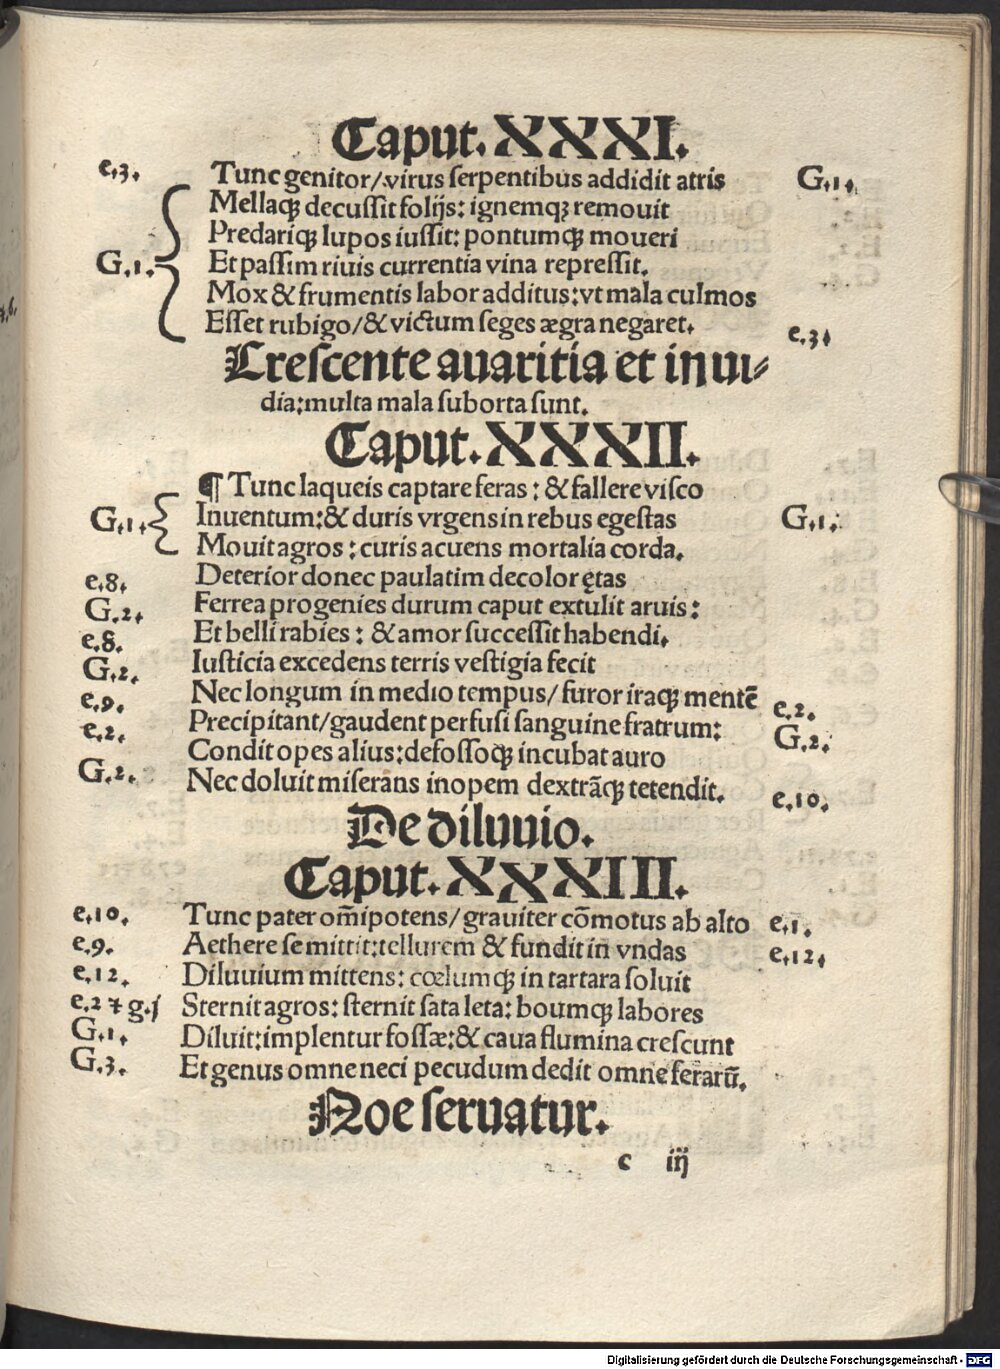 Caput. XXXI.
e.3. Tunc genitor/.virus serpentibus addidit atris G.1.
Mellaq; decussit folijs: ignemq; remouit
Predariq; lupos iussit: pontumq; moueri
G.1. Et passim riuis currentia vina repressit.
Mox & frumentis labor additus: vt mala culmos
Esset rubigo/& victum seges ægra negaret. e.3.
Crescente auaritia et inui⸗
dia: multa mala suborta sunt.
Caput. XXXII.
¶ Tunc laqueis captare feras: & fallere visco
G.1. Inuentum: & duris vrgens in rebus egestas G.1.
Mouit agros: curis acuens mortalia corda.
e.8. Deterior donec paulatim decolor ętas
G.2. Ferrea progenies durum caput extulit aruis:
e.8. Et belli rabies: & amor successit habendi.
G.2. Iusticia excedens terris vestigia fecit
e.9. Nec longum in medio tempus/ furor iraq; mentē e.2.
e.2. Precipitant/gaudent perfusi sanguine fratrum: G.2.
Condit opes alius: defossoq; incubat auro
G.2. Nec doluit miserans inopem dextrāq; tetendit. e.10.
De diluuio.
Caput. XXXIII.
e.10. Tunc pater om̄ipotens/ grauiter cōmotus ab alto e.1.
e.9. Aethere se mittit: tellurem & fundit in vndas e.12.
e.12. Diluuium mittens: cœlumq; in tartara soluit
e.2 ⁊ g.j Sternit agros: sternit sata leta: boumq; labores
G.1. Diluit: implentur fossæ: & caua flumina crescunt
G.3. Et genus omne neci pecudum dedit omne ferarū.
Noe seruatur.
c iij
Digitalisierung gefördert durch die Deutsche Forschungsgemeinschaft - DFG